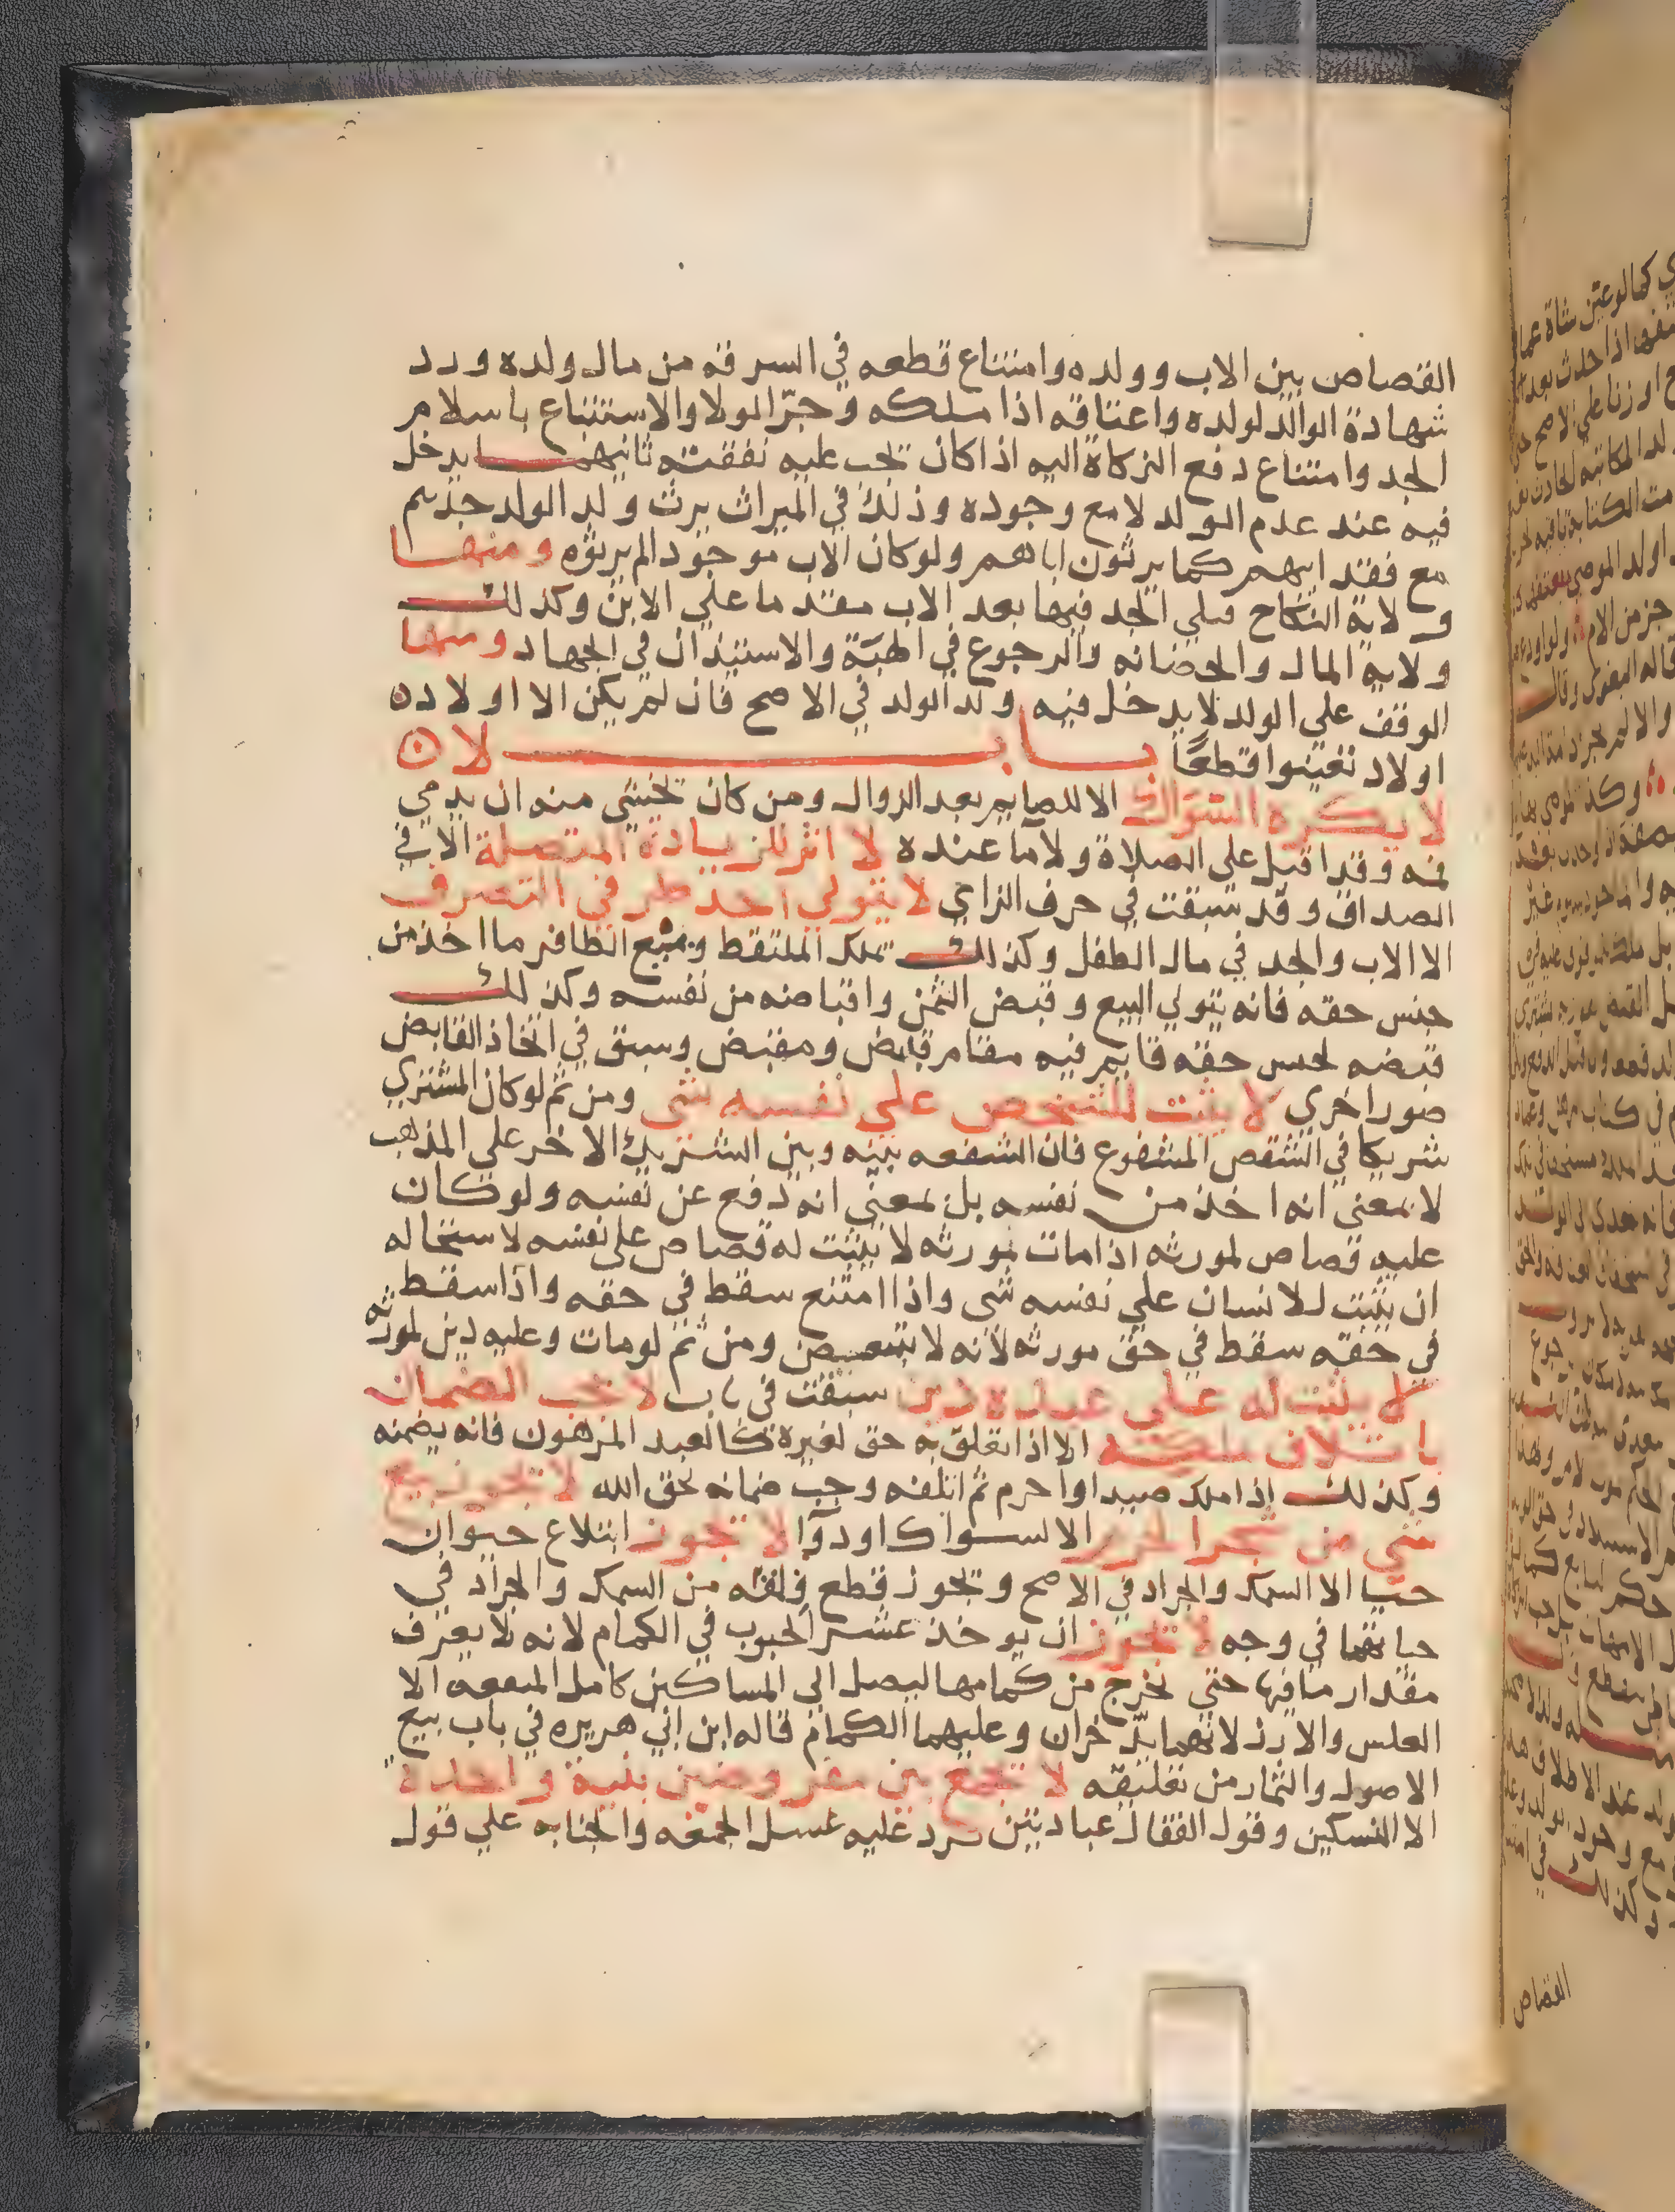 القصاص بين الاب وولده وامتناع قطعه في السرقه من مال ولده ورد
شهادة الوالد لولده واعتاقه اذا ملكه وجرّ الولا والاستتباع باسلام
الجد وامتناع دفع الزكاة اليه اذا كان تجب عليه نفقته ثانيهما يدخل
فيه عند عدم الولد لا مع وجوده وذلك في الميراث يرث ولد الولد جدهم
مع فقد ابيهم كما يرثون اباهم ولو كان الاب موجودا لم يرثوه ومنها
ولاية النكاح فيلي الجد فيها بعد الاب مقدما علي الابن وكذلك
ولاية المال والحضانه والرجوع في الهبة والاستيذان في الجهاد ومنها
الوقف علي الولد لا يدخل فيه ولد الولد في الاصح فان لم يكن الا اولاده
اولاد تعينوا قطعًا باب لا ن
لا يكره السواك الا للصايم بعد الزوال ومن كان يخشي منه ان يدمي
فمه وقد اقبل علي الصلاة ولا ما عنده لا اثر للزيادة المتصلة الا في
الصداق وقد سبقت في حرف الزاي لا يتولي احد طرفي التصرف
الا الاب والجد في مال الطفل وكذلك تملك الملتقط وبيع الظافر ما اخذ من
جنس حقه فانه يتولي البيع وقبض الثمن واقباضه من نفسه وكذلك
قبضه لجنس حقه قايم فيه مقام قابض ومقبض وسبق في اتخاذ القابض
صور اخري لا يثبت للشخص علي نفسه شي ومن ثم لو كان المشتري
شريكا في الشقص المشفوع فان الشفعه بينه وبين الشريك الاخر علي المذهب
لا بمعني انه اخذ من نفسه بل بمعني انه دفع عن نفسه ولو كان
عليه قصاص لمورثه اذا مات مورثه لا يثبت له قصاص علي نفسه لاستحاله
ان يثبت للانسان علي نفسه شي واذا امتنع سقط في حقه واذا سقط
في حقه سقط في حق مورثه لانه لا يتبعض ومن ثم لو مات وعليه دين لمورثه
لا يثبت له علي عبده دين سبقت في باب لا يجب الضمان
باتلاف ملكه الا اذا تعلق به حق لغيره كالعبد المرهون فانه يضمنه
وكذلك اذا ملك صيدا واحرم ثم اتلفه وجب ضمانه لحق الله لا يجوز بيع
شي من شجر الحرم الا لسواك او دوآ لا يجوز ابتلاع حيوان
حيا الا السمك والجراد في الاصح ويجوز قطع فلقه من السمك والجراد في
حياتهما في وجه لا يجوز ان يوخذ عشر الحبوب في الكمام لانه لا يعرف
مقدار ما فيها حتي تخرج من كمامها ليصل الي المساكين كامل المنفعه الا
العلس والارز لانهما يدّخران وعليهما الكمام قاله ابن ابي هريره في باب بيع
الاصول والثمار من تعليقه لا تجمع بين مفروضين بنية واحدة
الا النسكين وقول القفال عبادتين يرد عليه غسل الجمعه والجنابه علي قول
القصاص